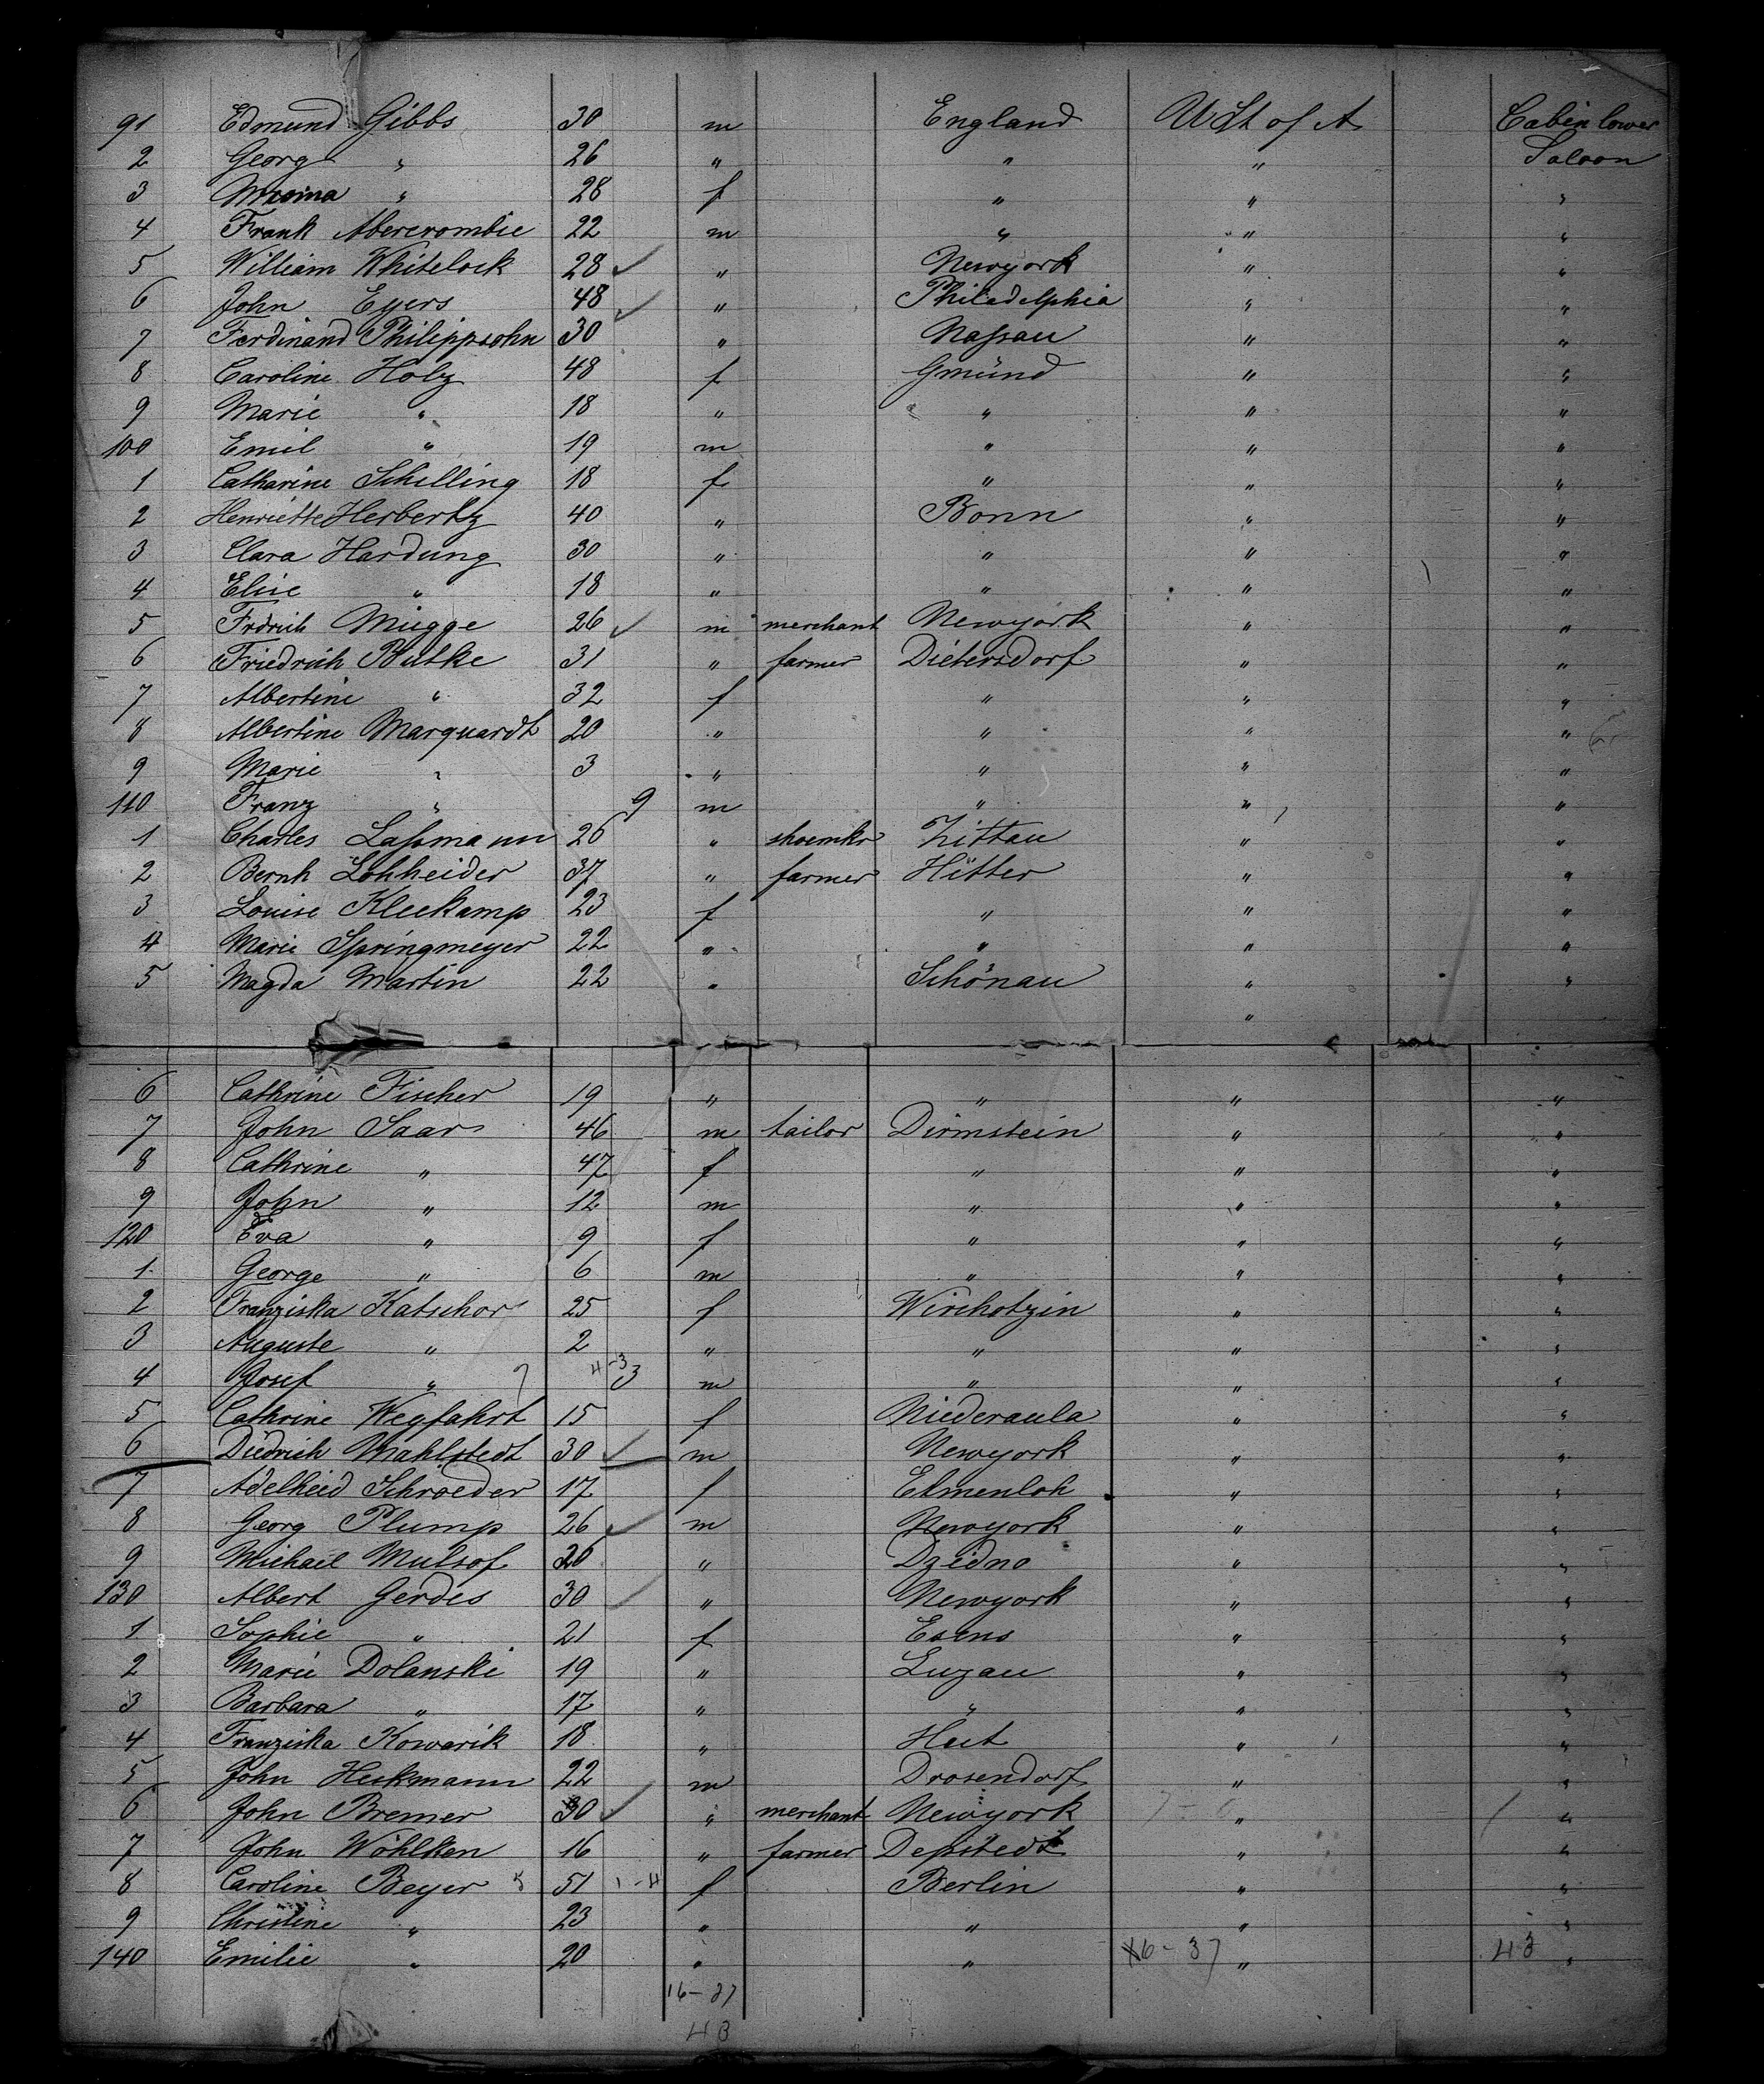 91 Edmund Gibbs 30 m England U St of A Cabin lower
2 Georg " 26 " " " Saloon
3 " 28 f " " "
4 Frank Abercrombie 22 m " " "
5 William Whitelock 28 ✓ " Newyork " "
6 John Eyers 48 ✓ " Philadelphia " "
7 Ferdinand Philippsohn 30 " Naſsau " "
8 Caroline Holz 48 f Gmünd " "
9 Marie " 18 " " " "
100 Emil " 19 m " " "
1 Catharine Schilling 18 f " " "
2 Henriette Herbertz 40 " Bonn " "
3 Clara Hardung 30 " " " "
4 Elise " 18 " " " "
5 Frdrich Mügge 26 ✓ m merchant Newyork " "
6 Friedrich Butke 31 " farmer Dietersdorf " "
7 Albertine " 32 f " " "
8 Albertine Marquardt 20 " " " "
9 Marie " 3 " " " "
110 Franz " 9 m " " "
1 Charles Laſsmann 26 " shoemkr Zittau " "
2 Bernh Lohheider 37 " farmer Hilter " "
3 Louise Kleekamp 23 f " " "
4 Marie Springmeyer 22 " " " "
5 Magda Martin 22 " Schönau " "
"
6 Cathrine Fischer 19 " " " "
7 John Saar 46 m tailor Dirmstein " "
8 Cathrine " 47 f " " "
9 John " 12 m " " "
120 Eva " 9 f " " "
1 George " 6 m " " "
2 Franziska Katschor 25 f Wirchotzin " "
3 Auguste " 2 " " " "
4 Josef " 4-3 3 m " " "
5 Cathrine Wegfahrt 15 f Niederaula " "
6 Diedrich Mahlstedt 30 ✓ m Newyork " "
7 Adelheid Schroeder 17 f Elmenloh " "
8 Georg Plump 26 ✓ m Newyork " "
9 Michael Mulsof 26 " Dzidno " "
130 Albert Gerdes 30 ✓ " Newyork " "
1 Sophie " 21 f Esens " "
2 Marie Dolanski 19 " Luzau " "
3 Barbara " 17 " " " "
4 Franziska Kowarik 18 " " "
5 John Heckmann 22 m Drosendorf " "
6 John Bremer 30 ✓ " merchant Newyork " "
7 John Wöhlken 16 " farmer Depstedt " "
8 Caroline Beyer 51 1-4 f Berlin " "
9 Christine " 23 " " " "
140 Emilie " 20 " " 16-37 " 43 "
16-27
43